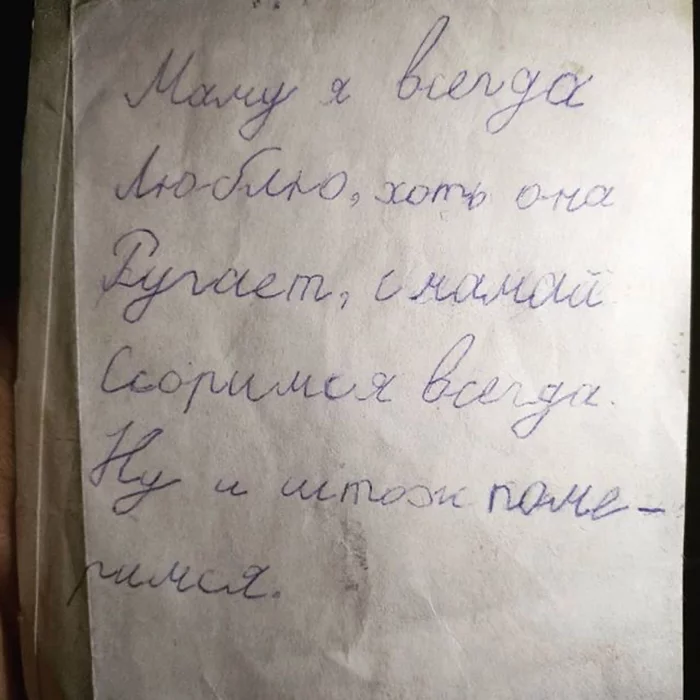 Маму я всегда
Люблю, хоть она
Ругает, с мамай
Ссоримся всегда.
Ну и штож поме-
римся.